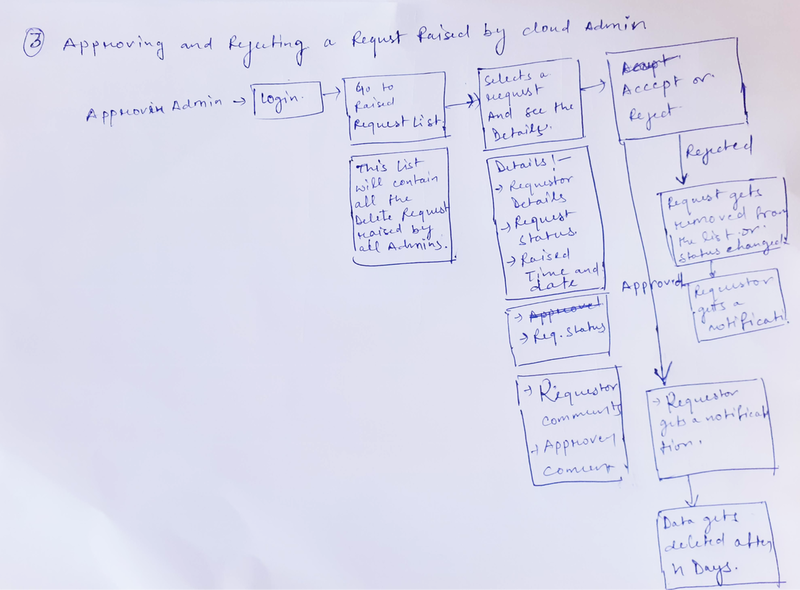 ③ Approving and Rejecting a Requst Raised by cloud Admin
Approvin Admin → Login.
Go to
Raised
Request List.
This list
will contain
all the
Delete Request
raised by
all Admins.
Selects a
request
And see the
Details.
Details! -
→ Requestor
Details
→ Request
status.
→ Raised
Time and
date
→ Approvel
→ Req. Status
→ Requestor
comments
→ Approver
Coment
Accept
Accept or
Reject
Rejected
Request gets
removed from
the list or
status changed.
Requestor
gets a
notificati
Approved
→ Requestor
gets a notificat
tion.
Data gets
deleted after
n Days.